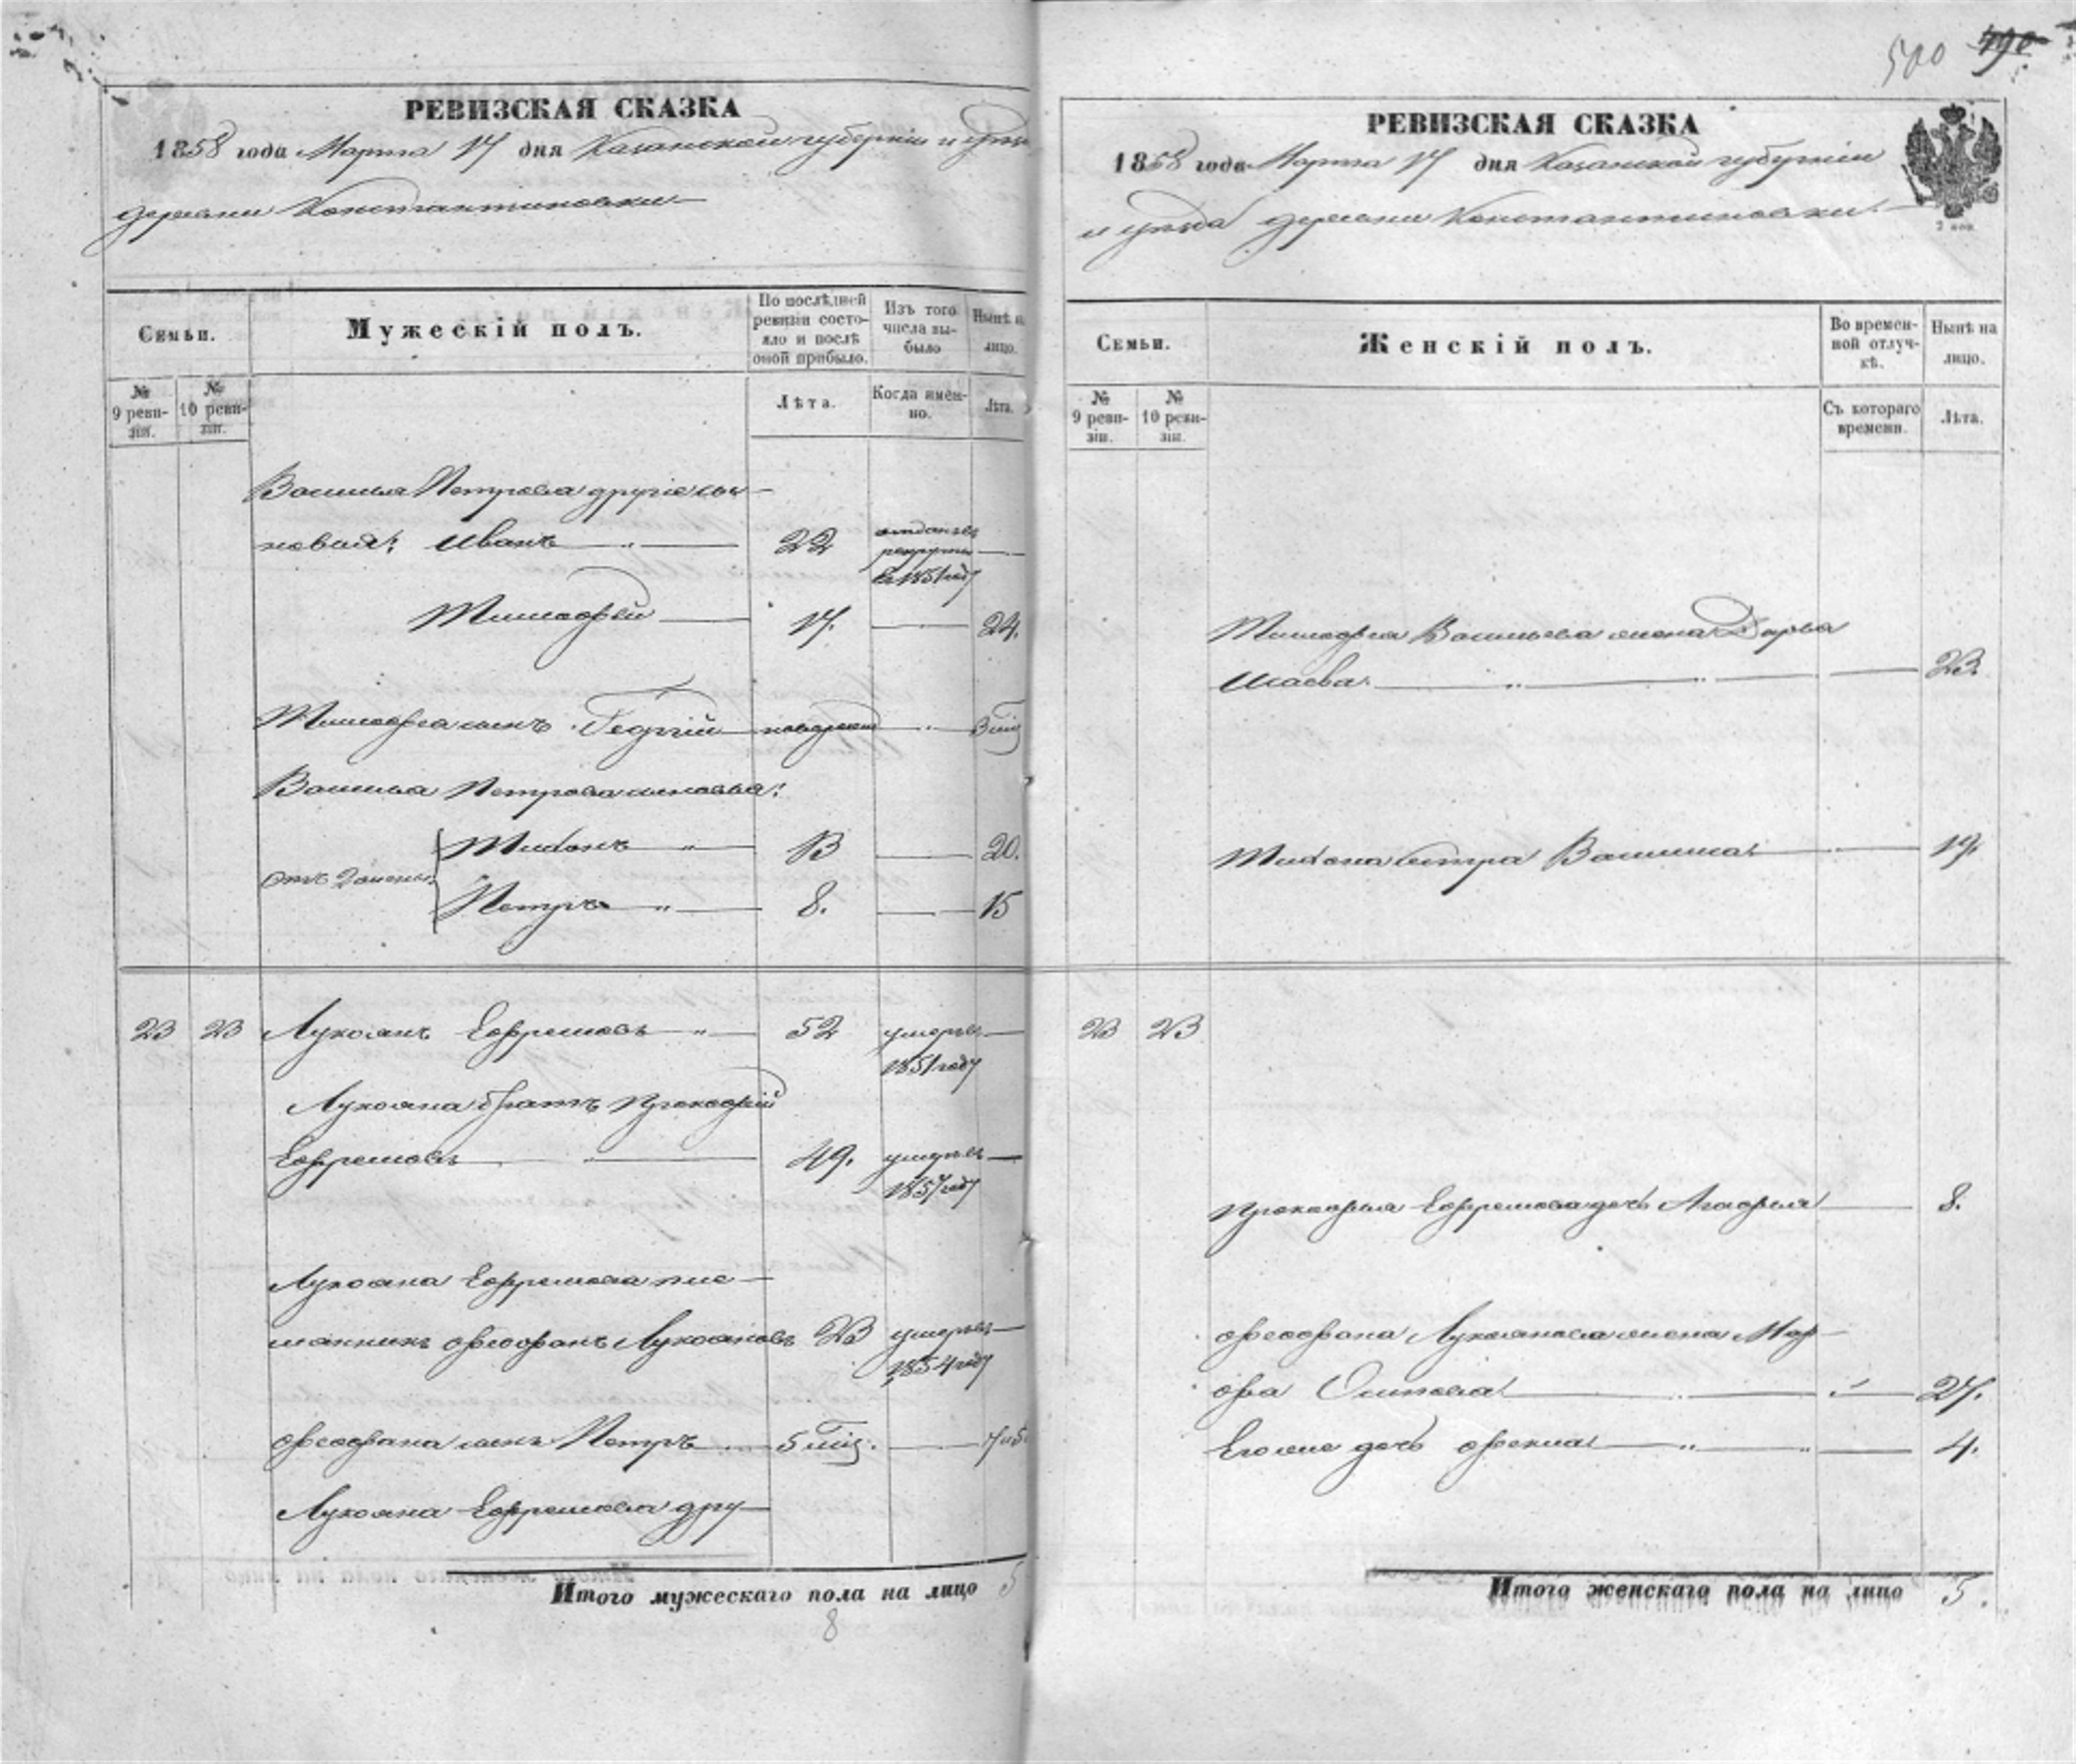 500 490
РЕВИЗСКАЯ СКАЗКА
1858 года Марта 17 дня Казанской губерніи и уѣзда
деревни Константиновки
Семьи.
Мужескій полъ.
По послѣдней ревизіи состояло и послѣ оной прибыло.
Изъ того числа выбыло
Нынѣ на лицо.
№ 9 ревизіи.
№ 10 ревизіи.
Лѣта.
Когда именно.
Лѣта.
Василья Петрова другіе сы-
новья: Иванъ 22 отданъ въ рекруты въ 1851 году
Тимофей 17. 24.
Тимофея сынъ Георгій новорож 3 мѣс
Василья Петрова сыновья:
отъ 2 жены: Тихонъ 13 20.
Петръ 8. 15
23 23 Лукоянъ Ефремовъ 52 умеръ 1851 году
Лукояна братъ Прокофій
Ефремовъ 49. умеръ 1857 году
Лукояна Ефремова пле-
мянникъ Феофанъ Лукояновъ 23 умеръ 1854 году
Феофана сынъ Петръ 5 мѣс. 7 и 5
Лукояна Ефремова дру-
Итого мужескаго пола на лицо 5
8
РЕВИЗСКАЯ СКАЗКА
1858 года Марта 17 дня Казанской губерніи
и уѣзда деревни Константиновки.
2 коп.
Семьи.
Женскій полъ.
Во временной отлучкѣ.
Нынѣ на лицо.
№ 9 ревизіи.
№ 10 ревизіи.
Съ котораго времени.
Лѣта.
Тимофея Васильева жена Дарья
Исаева 23.
Тихона сестра Васимиса 19.
23 23
Прокофья Ефремова дочь Агафья 8.
Феофана Лукоянова жена Мар-
фа Осипова 27.
Его же дочь Фекла 4.
Итого женскаго пола на лицо 5.